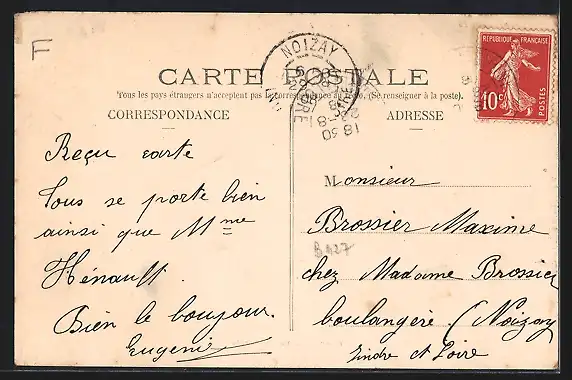 F
CARTE POSTALE
Tous les pays étrangers n'acceptent pas la correspondance au recto. (Se renseigner à la poste).
CORRESPONDANCE
ADRESSE
NOIZAY
18 30
REPUBLIQUE FRANÇAISE
10c
POSTES
Reçu carte
Tous se porte bien
ainsi que Mme
Hénault.
Bien le boujour.
Eugenie
Monsieur
Brossier Maxime
B427
chez Madame Brossier
boulangère (Noizay
Indre et Loire